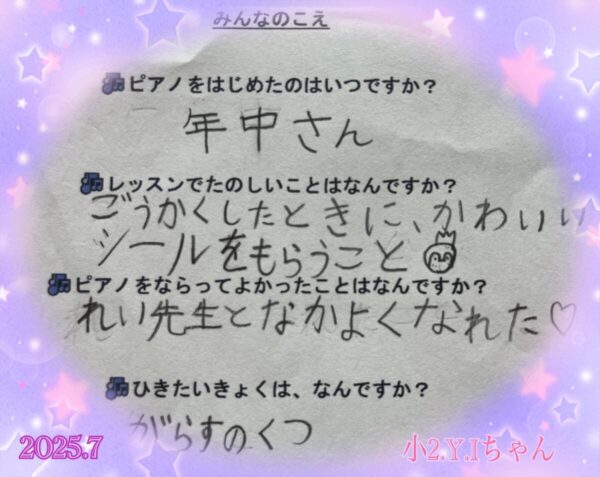 みんなのこえ
ピアノをはじめたのはいつですか？
年中さん
レッスンでたのしいことはなんですか？
ごうかくしたときに、かわいい
シールをもらうこと
ピアノをならってよかったことはなんですか？
れい先生となかよくなれた♡
ひきたいきょくは、なんですか？
がらすのくつ
2025.7
小2.Y.Iちゃん